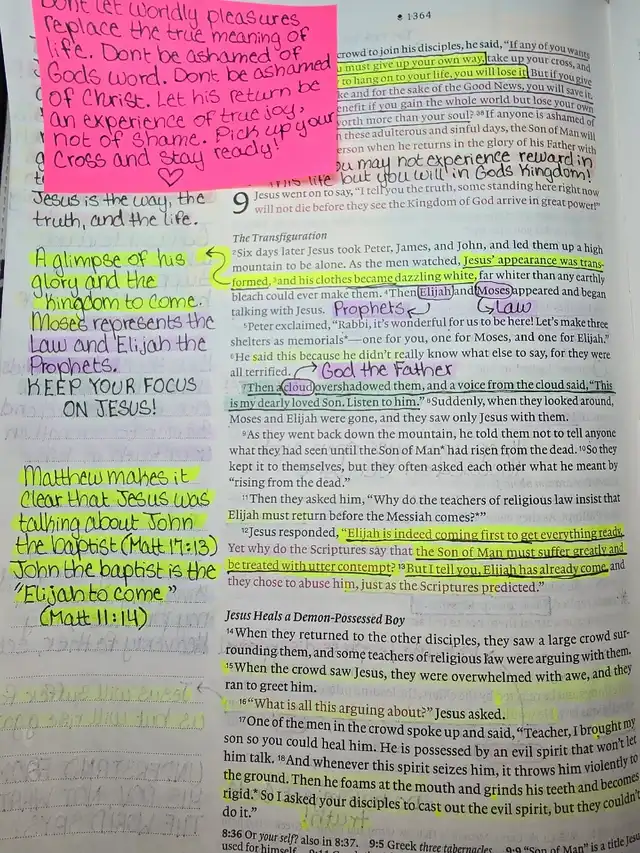 1364
Dont let worldly pleasures
replace the true meaning of
life. Dont be ashamed of
Gods word. Dont be ashamed
of Christ. Let his return be
an experience of true joy,
not of shame. Pick up your
cross and stay ready!
Jesus is the way, the
truth, and the life.
A glimpse of his
glory and the
kingdom to come.
Moses represents the
Law and Elijah the
Prophets.
KEEP YOUR FOCUS
ON JESUS!
Matthew makes it
clear that Jesus was
talking about John
the baptist (Matt 17:13)
John the baptist is the
"Elijah to come"
(Matt 11:14)
crowd to join his disciples, he said, "If any of you wants
must give up your own way, take up your cross, and
to hang on to your life, you will lose it. But if you give
and for the sake of the Good News, you will save it.
benefit if you gain the whole world but lose your own
worth more than your soul? 38 If anyone is ashamed
these adulterous and sinful days, the Son of Man will
person when he returns in the glory of his Father with
you may not experience reward in
this life but you will in Gods Kingdom!
9 Jesus went on to say, "I tell you the truth, some standing here right now
will not die before they see the Kingdom of God arrive in great power!"
The Transfiguration
2 Six days later Jesus took Peter, James, and John, and led them up a high
mountain to be alone. As the men watched, Jesus' appearance was trans-
formed, 3 and his clothes became dazzling white, far whiter than any earthly
bleach could ever make them. 4 Then Elijah and Moses appeared and began
talking with Jesus. Prophets Law
5 Peter exclaimed, "Rabbi, it's wonderful for us to be here! Let's make three
shelters as memorials*—one for you, one for Moses, and one for Elijah."
6 He said this because he didn't really know what else to say, for they were
all terrified. God the Father
7 Then a cloud overshadowed them, and a voice from the cloud said, "This
is my dearly loved Son. Listen to him." 8 Suddenly, when they looked around,
Moses and Elijah were gone, and they saw only Jesus with them.
9 As they went back down the mountain, he told them not to tell anyone
what they had seen until the Son of Man* had risen from the dead. 10 So they
kept it to themselves, but they often asked each other what he meant by
"rising from the dead."
11 Then they asked him, "Why do the teachers of religious law insist that
Elijah must return before the Messiah comes?*"
12 Jesus responded, "Elijah is indeed coming first to get everything ready.
Yet why do the Scriptures say that the Son of Man must suffer greatly and
be treated with utter contempt? 13 But I tell you, Elijah has already come, and
they chose to abuse him, just as the Scriptures predicted."
Jesus Heals a Demon-Possessed Boy
14 When they returned to the other disciples, they saw a large crowd sur-
rounding them, and some teachers of religious law were arguing with them.
15 When the crowd saw Jesus, they were overwhelmed with awe, and they
ran to greet him.
16 "What is all this arguing about?" Jesus asked.
17 One of the men in the crowd spoke up and said, "Teacher, I brought my
son so you could heal him. He is possessed by an evil spirit that won't let
him talk. 18 And whenever this spirit seizes him, it throws him violently to
the ground. Then he foams at the mouth and grinds his teeth and becomes
rigid.* So I asked your disciples to cast out the evil spirit, but they couldn't
do it."
8:36 Or your self? also in 8:37. 9:5 Greek three tabernacles. 9:9 "Son of Man" is a title
used for himself.